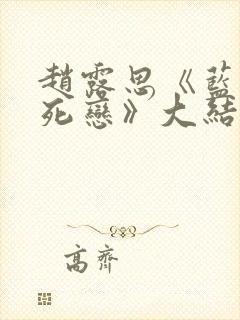 趙露思《藍
死戀》大結
高齊